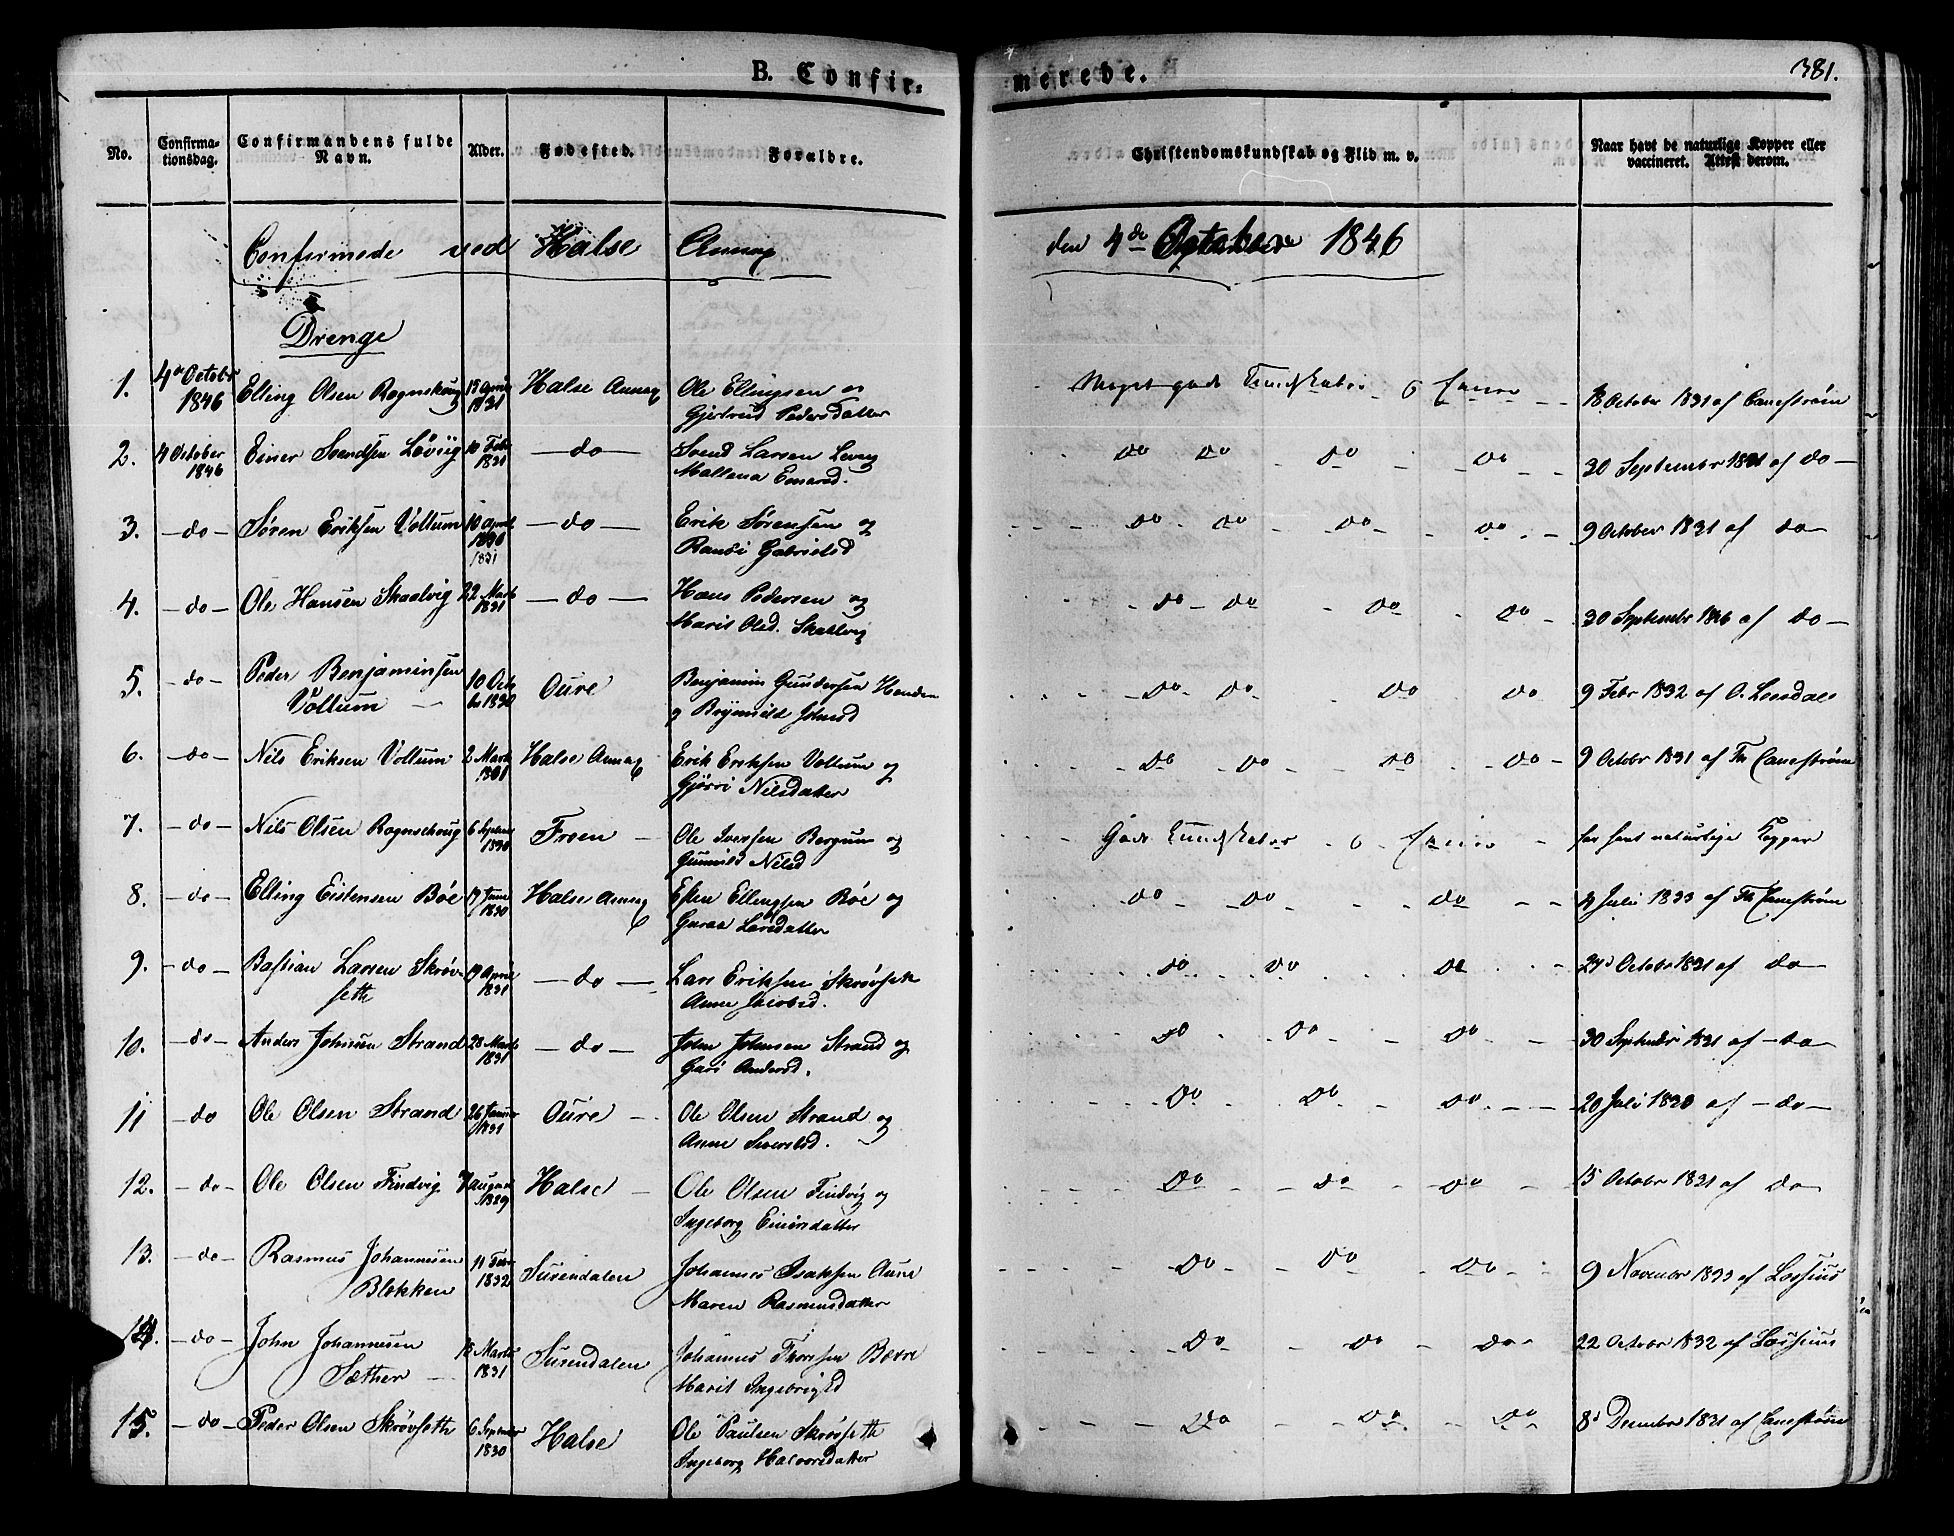 B. Confir-
merede.
381.
No.
Confirma-
tionsdag.
Confirmandens fulde
Navn.
Alder.
Fødested.
Forældre.
Christendomskundskab og Flid m. v.
Naar havt de naturlige Kopper eller
vaccineret. Attest derom.
Confirmede ved Halse Annex
den 4de October 1846
Drenge
1. 4de Octobr 1846 Elling Olsen Rognskoug 13 April 1831 Halse Annex Ole Ellingsen og
Gjertrud Pedersdatter
Meget gode Kundskaber 18 October 1831 af Canestrøm
2. 4 October 1846 Einer Svendsen Løvig 10 Febr 1831 - do - Svend Larsen
Mallena
do do do do 30 Septembr 1831 af do -
3. - do - Søren Eriksen Vollum 10 April 1830 1831 - do - Erik Sørensen og
Randi Gabrielsd
do do do do 9 October 1831 af do -
4. - do - Ole Hansen Skaalvig 22 Marts 1831 - do - Hans Pedersen og
Marit Olsd. Skaalvig
do - do - do - do - 30 Septembr 1846 af do -
5. - do - Peder Benjaminsen
Vollum -
10 Octobr 1830 Oure Benjamin Gundersen Henden
og Brynnild Johnsd
do - do - do do 9 Febr 1832 af O. Leesdal
6. - do - Nils Eriksen Vollum 2 Marts 1831 Halse Annex Erik Eriksen Vollum og
Gjørri Nilsdatter
do do - do - do - 9 Octobr 1831 af Th Canestrøm
7. - do - Nils Olsen Rognschoug 6 Septembr 1830 Froen - Ole Iversen Bergum og
Gunnild Nilsd
Gode Kundskaber har havt naturlige Kopper
8. - do - Elling Eistensen Bøe 17 Juni 1830 Halse Annex Esten Ellingsen Bøe og
Guraa Larsdatter
do do do - 4 Juli 1833 af Th Canestrøm
9. - do - Bastian Larsen Skrøv-
seth
19 April 1831 - do - Lars Eriksen Skrøvseth
Anne Jacobsd.
do do do 24d Octobr 1831 af do -
10. - do - Anders Johnsen Strand 28 Marts 1831 - do - John Johnsen Strand og
Guri Andersd.
do do do - 30 Septembr 1831 af - do -
11 - do Ole Olsen Strand 26 Januar 1831 Oure - Ole Olsen Strand og
Anne Siversd.
do do do - 20 Juli 1830 af - do -
12. - do - Ole Olsen Findvig 7 August 1829 Halse - Ole Olsen Findvig og
Ingeborg Einersdatter
do - do - do 15 Octobr 1831 af do
13. - do - Rasmus Johannesen
Blekken
11 Febr 1832 Surendalen Johannes Isaksen Aune
Maren Rasmusdatter
do do do 9 Novembr 1833 af Lossius
14. - do - John Johannesen
Sæther -
18 Marts 1831 Surendalen Johannes Thoresen Bævre
Marit Ingebrigtsd
do - do - do 22 Octobr 1832 af Lossius
15. - do - Peder Olsen Skrøvseth 6 September 1830 Halse Ole Paulsen Skrøvseth
Ingeborg Halvorsdatter
do - do - do - 8d Decembr 1831 af Canestrøm